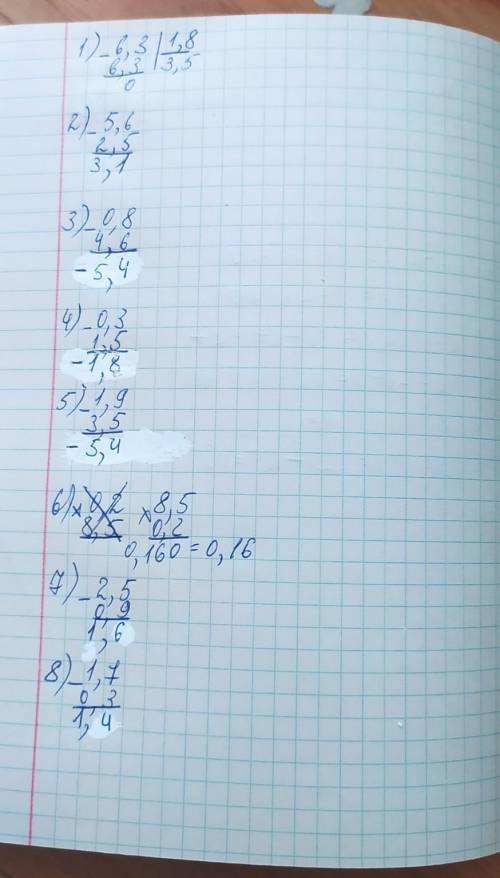 1) - 6,3 | 1,8
6,3 3,5
0
2) - 5,6
2,5
3,1
3) - 0,8
4,6
- 5,4
4) - 0,3
1,5
- 1,8
5) - 1,9
3,5
- 5,4
6) x 0,2 x 8,5
8,5 0,2
0,160 = 0,16
7) - 2,5
0 9
1,6
8) - 1,7
0 3
1,4